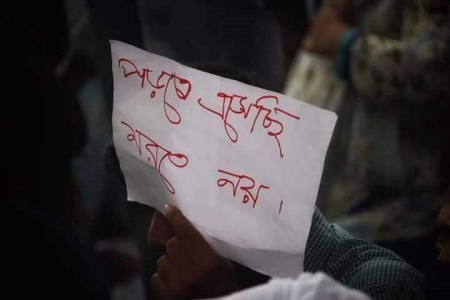 পড়তে এসেছি
মরতে নয়।